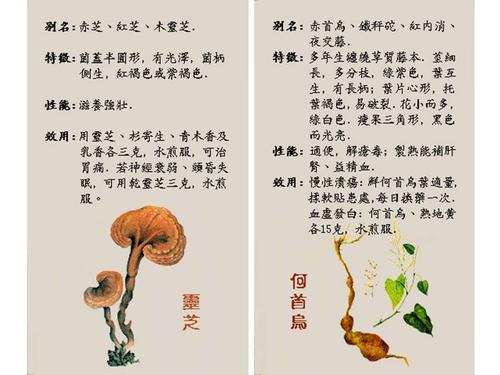 別名:赤芝、紅芝、木靈芝.
特徵:菌蓋半圓形,有光澤,菌柄
側生,紅褐色或紫褐色.
性能:滋養強壯.
效用:用靈芝、杉寄生、青木香及
乳香各三克,水煎服,可治
胃痛.若神經衰弱、頭昏失
眠,可用乾靈芝三克,水煎
服。
靈芝
別名:赤首烏、鐵秤砣、紅內消、
夜交藤.
特徵:多年生纏繞草質藤本.莖細
長,多分枝,綠紫色,葉互
生,有長柄;葉片心形,托
葉褐色,易破裂.花小而多,
綠白色.瘦果三角形,黑色
而光亮.
性能:通便,解瘡毒;製熟能補肝
腎、益精血.
效用:慢性潰瘍:鮮何首烏葉適量,
揉軟貼患處,每日換藥一次.
血虛發白:何首烏、熟地黃
各15克,水煎服.
何首烏